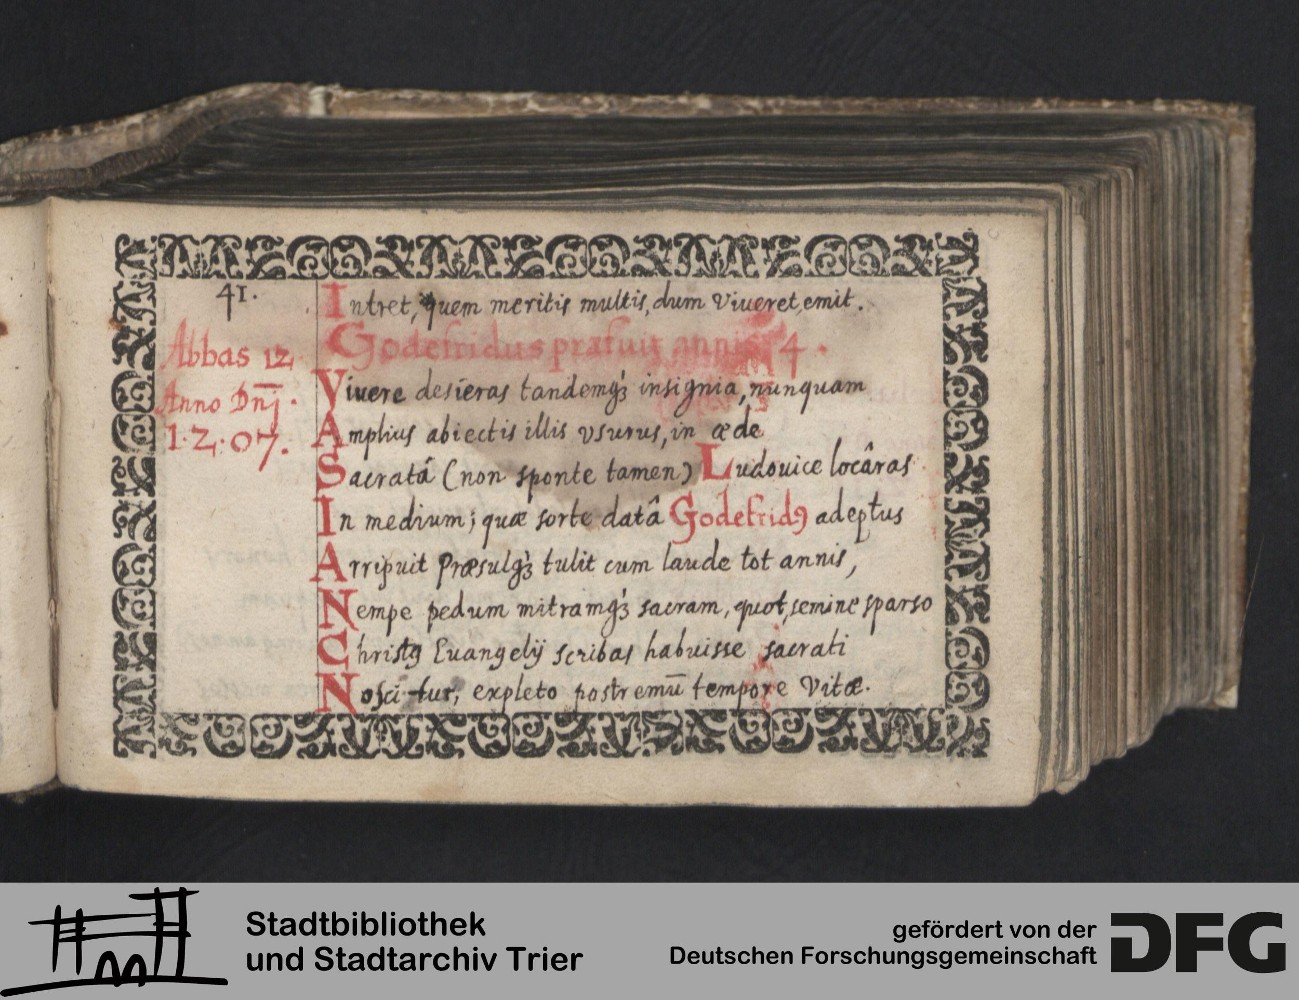 41.
Intret, quem meritis multis, dum Viueret, emit.
Godefridus præfuit annis 4.
Abbas 12.
Anno Dnj.
1.2.07.
Viuere desieras tandemqꝫ insignia, nunquam
Amplius abiectis illis vsurus, in æde
Sacratâ (non sponte tamen) Ludouice locâras
In medium; quæ sorte datâ Godefridꝰ adeptus
Arripuit Præsulqꝫ tulit cum laude tot annis,
Nempe pedum mitramqꝫ sacram, quot, semine sparso
Christꝰ Euangelij scribas habuisse sacrati
Nosci-tur, expleto postremū tempore Vitæ.
Stadtbibliothek
und Stadtarchiv Trier
gefördert von der
Deutschen Forschungsgemeinschaft
DFG